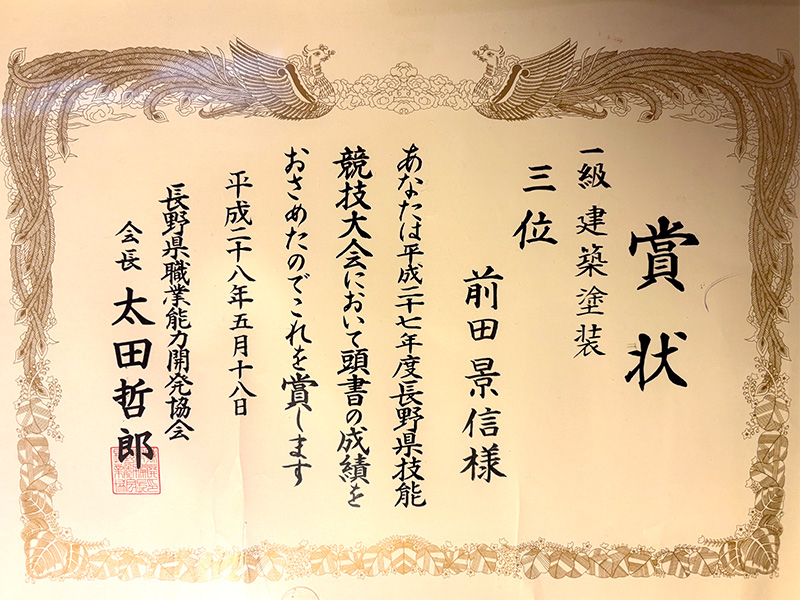 賞状
一級 建築塗装
三位
前田景信様
あなたは平成二十七年度長野県技能
競技大会において頭書の成績を
おさめたのでこれを賞します
平成二十八年五月十八日
長野県職業能力開発協会
会長 太田哲郎